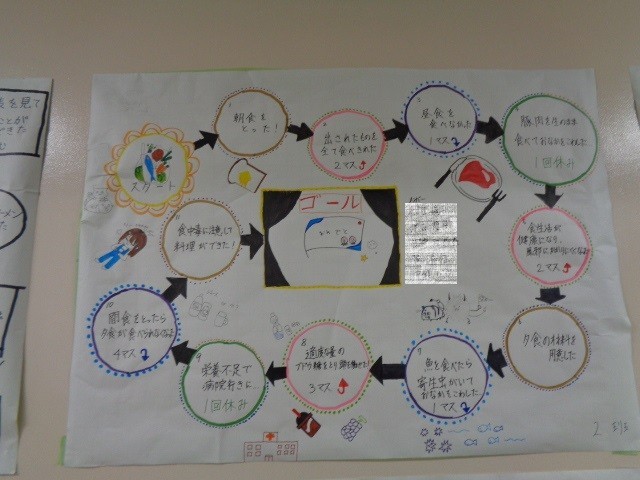 スタート
朝食を
とった!
出されたものを
全て食べきれた
2マス
昼食を
食べなかった
1マス
豚肉を生のまま
食べておなかをこわした
1回休み
食生活が
健康になり、
2マス
夕食の材料を
用意した
魚を食べたら
寄生虫がいて
おなかをこわした
1マス
適度な量の
ブドウ糖をとり頭が働いた
3マス
栄養不足で
病院行きに…
1回休み
間食をとったら
夕食が食べられなくなった
4マス
食中毒に注意して
料理ができた!
ゴール
メンバー
2
を見て
ことが
できた
メン